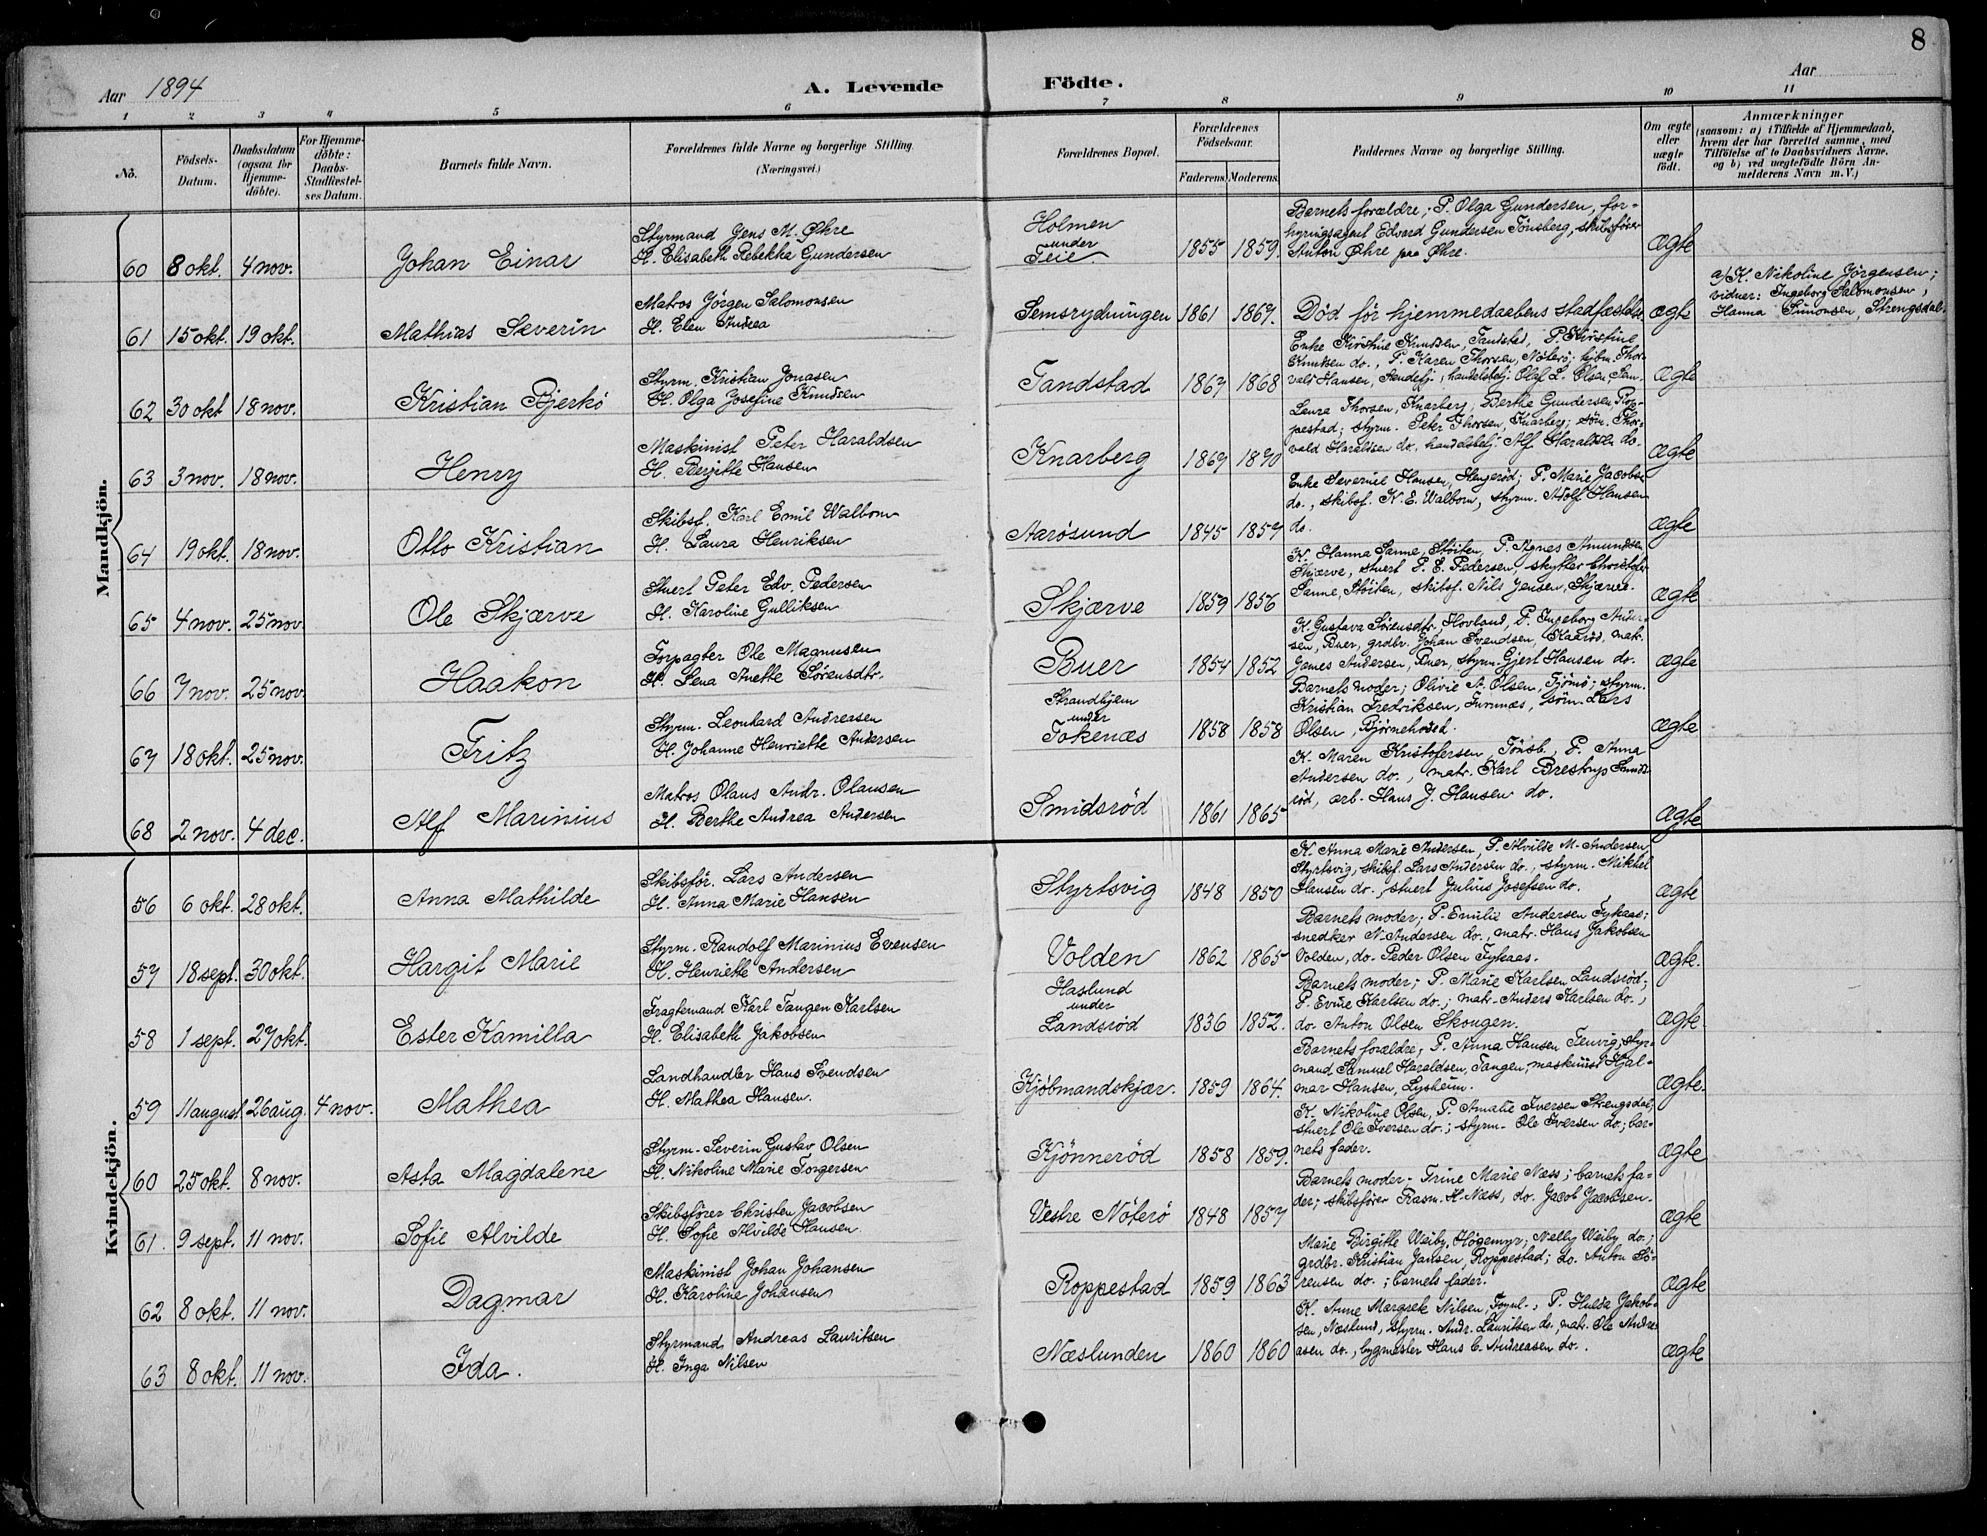 8
Aar 1894 A. Levende Födte. Aar
1 2 3 4 5 6 7 8 9 10 11
No. Födsels-Datum. Daabsdatum (ogsaa for Hjemme-döbte). For Hjemme-döbte: Daabs-Stadfæstel-ses Datum. Barnets fulde Navn. Forældrenes fulde Navne og borgerlige Stilling. (Næringsvei.) Forældrenes Bopæl. Forældrenes Födselsaar. Faderens. Moderens. Faddernes Navne og borgerlige Stilling. Om ægte eller uægte födt. Anmærkninger (saasom: a) i Tilfælde af Hjemmedaab, hvem der har forrettet samme, med Tilföielse af to Daabsvidners Navne, og b) ved uægtefödte Börn An-melderens Navn m.V.)
Mandkjön.
60 8 okt. 4 nov. Johan Einar
Styrmand Jens M. Øhre
H. Elisabeth Rebekka Gundersen
Holmen
under
Teie.
1855 1859.
Barnets forældre; P. Olga Gundersen, for-
hyringsagent Edvard Gundersen Tönsberg, skibsfører
Anton Øhre Øhre.
ægte
61 15 okt. 19 okt. Mathias Severin
Matros Jörgen Salomonsen
H. Elen Andrea
Semsrydningen 1861 1869. Död för hjemmedaabens stadfæstelse ægte
a/ K. Nikoline Jørgensen;
vidner: Ingeborg Salomonsen,
Hanna Simonsen, Strengsdal.
62 30 okt 18 nov. Kristian Bjerkö
Styrm. Kristian Jonasen
H. Olga Josefine Knudsen
Tandstad 1867 1868
Enke Kirstine Knudsen, Tandstad, P. Kirstine
Knudsen do., P. Karen Thorsen, Nöterö; Thor-
vald Hansen, Sandefj., handelsbetj. Olaf L. Olsen,
ægte
63 3 nov. 18 nov. Henry
Maskinist Peter Haraldsen
H. Bergitte Hansen
Knarberg 1869 1870
Laura Thorsen, Knarberg, Berthe Gundersen Rop-
pestad; styrm. Peter Thorsen, Knarberg; söm. Thor-
vald Haraldsen do., handelsbetj. Alf Haraldsen do.
ægte
64 19 okt. 18 nov. Otto Kristian
Skibsf. Karl Emil Walbom
H. Laura Henriksen
Aarösund 1845 1857
Enke Severine Hansen, Hengeröd; P. Marie Jacobsen
do., skibsf. K. E. Walbom, styrm. Adolf Hansen
do.
ægte
65 4 nov. 25 nov Ole Skjærve
Stuert Peter Edv. Pedersen
H. Karoline Gulliksen
Skjærve 1859 1856
K. Hanna Sanne, Stöiten, P. Agnes Amundsen
Skjærve, stuert P. E. Pedersen, skytter Christofer
Sanne, Stöiten, skibsf. Nils Jensen, Skjærve.
ægte
66 7 nov. 25 nov. Haakon
Forpagter Ole Magnusen
H. Lena Anette Sörensdtr.
Buer 1854 1852
K. Gustava Sörensdtr. Hovland, P. Ingeborg Ander-
sen, Buer, grdbr. Johan Svendsen, Skaaröd, matr.
James Andersen, Buer, styrm. Gjert Hansen do.
ægte
67 18 okt. 25 nov. Fritz
Styrm. Leonhard Andreasen
H. Johanne Henriette Andersen
Strandhjem
under
Tokenæs
1858 1858
Barnets moder; Olivie A. Olsen, Tjömö; styrm.
Kristian Fredriksen, Furunæs, söm. Lars
Olsen, Bjørnehoded.
ægte
68 2 nov. 4 dec. Alf Marinius
Matros Olaus Andr. Olausen
H. Berthe Andrea Andersen
Smidsröd 1861 1865
K. Maren Kristofersen, Tönsb., P. Anna
Andersen do., matr. Karl Brestrup Smids-
röd, arb. Hans J. Hansen do.
ægte
Kvindekjön.
56 6 okt. 28 okt. Anna Mathilde
Skibsför. Lars Andersen
H. Anna Marie Hansen
Styrtsvig 1848 1850
K. Anna Marie Andersen, P. Alvilde M. Andersen
Styrtsvig, skibsf. Lars Andersen do., styrm. Mikkel
Hansen do.; stuert Julius Josefsen do.
ægte
57 18 sept. 30 okt. Hargit Marie
Styrm. Randolf Marinius Evensen
H. Henriette Andersen
Volden 1862 1865
Barnets moder; P. Emilie Andersen Tykaas;
snedker N. Andersen do., matr. Hans Jakobsen
Volden, do. Peder Olsen Tykaas.
ægte.
58 1 sept. 27 okt. Ester Kamilla
Fragtemand Karl Tangen Karlsen
H. Elisabeth Jakobsen
Haslund
under
Landsröd
1836 1852.
Barnets moder; P. Marie Karlsen Landsröd;
P. Evine Karlsen do.; matr. Anders Karlsen do.,
do. Anton Olsen Skougen.
ægte.
59 11 august 26 aug. 4 nov. Mathea
Landhandler Hans Svendsen
H. Mathea Hansen.
Kjöbmandskjær. 1859 1864.
Barnets forældre, P. Anna Hansen Tenvig; styr-
mand Samuel Haraldsen, Tangen, maskinist Hjal-
mar Hansen, Lysheim.
ægte.
60 25 okt. 8 nov. Asta Magdalene
Styrm. Severin Gustav Olsen
H. Nikoline Marie Torgersen
Kjönneröd 1858 1859.
K. Nikoline Olsen, P. Amalie Iversen Strengsdal,
stuert Ole Iversen do.; styrm. Ole Iversen do; bar-
nets fader.
ægte
61. 9 sept. 11 nov. Sofie Alvilde
Skibsförer Christen Jacobsen
H. Sofie Alvilde Hansen
Vestre Nöterö 1848 1857
Barnets moder - Trine Marie Næss; barnets fa-
der; skibsfører Rasm. H. Næss, do. Jacob Jacobsen.
ægte
62 8 okt. 11 nov. Dagmar
Maskinist Johan Johansen
H. Karoline Johansen
Roppestad 1859 1863
Marie Birgitte Weiby, Högemyr; Nelly Weiby do.;
grdbr. Kristian Jansen, Roppestad; do. Anton Sö-
rensen do.; barnets fader.
ægte
63 8 okt. 11 nov. Ida.
Styrmand Andreas Lauritsen
H. Inga Nilsen
Næslunden 1860 1860
K. Anne Margrete Nilsen, P. Hulda Jakob-
sen, Næslund, styrm. Andr. Lauritsen do., matr. Ole Andre-
asen do., bygmester Hans C. Andreasen do.
ægte